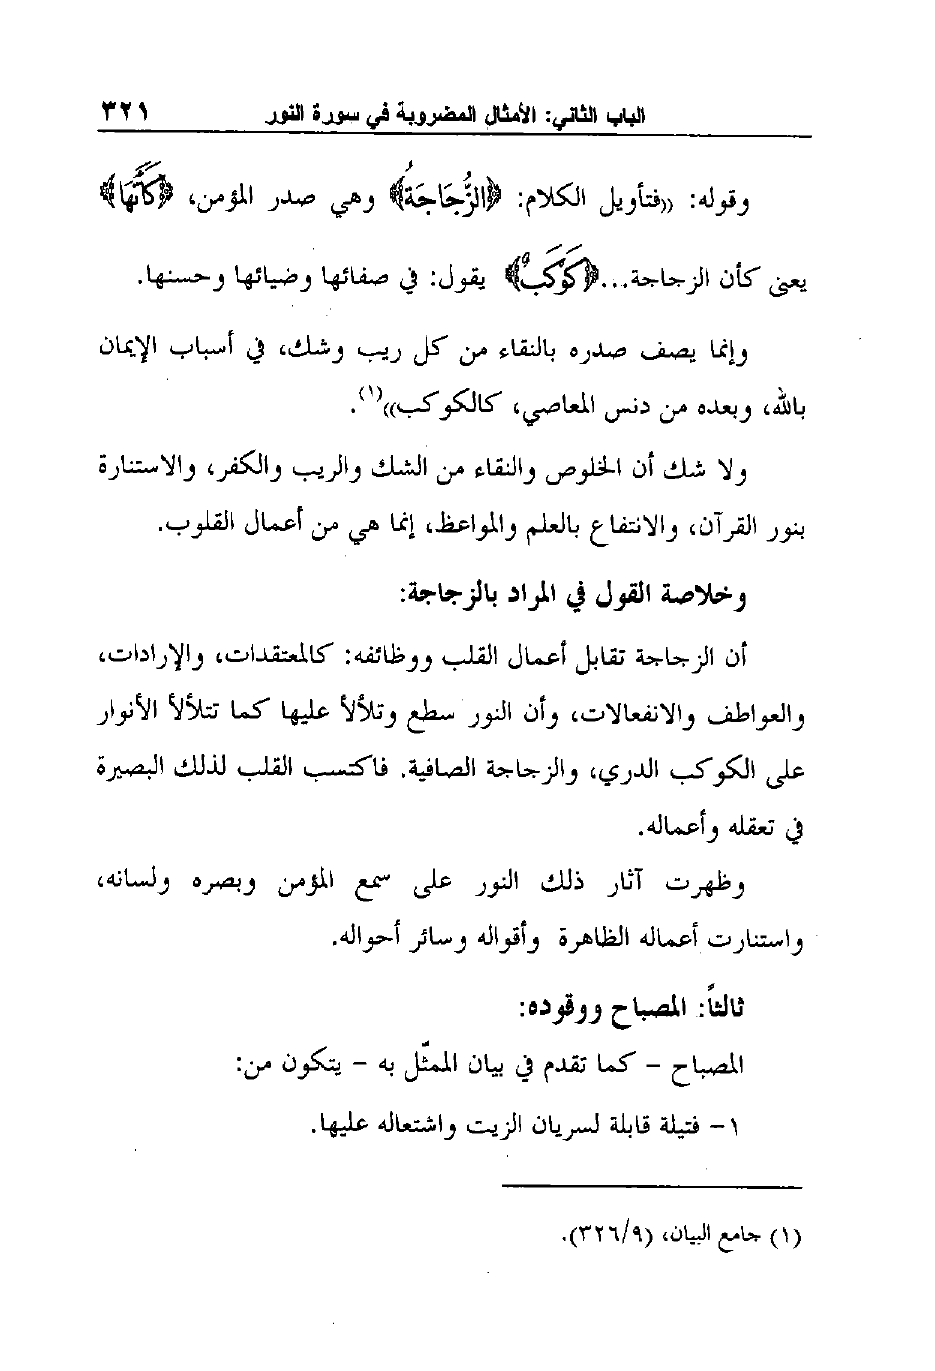 الباب الثاني: الأمثال المضروبة في سورة النور ٣٢١
وقوله: ((فتأويل الكلام: ﴿الزُّجَاجَةُ﴾ وهي صدر المؤمن، ﴿كَأَنَّهَا﴾
يعني كأن الزجاجة...﴿كَوْكَبٌ﴾ يقول: في صفائها وضيائها وحسنها.
وإنما يصف صدره بالنقاء من كل ريب وشك، في أسباب الإيمان
بالله، وبعده من دنس المعاصي، كالكوكب))(١).
ولا شك أن الخلوص والنقاء من الشك والريب والكفر، والاستنارة
بنور القرآن، والانتفاع بالعلم والمواعظ، إنما هي من أعمال القلوب.
وخلاصة القول في المراد بالزجاجة:
أن الزجاجة تقابل أعمال القلب ووظائفه: كالمعتقدات، والإرادات،
والعواطف والانفعالات، وأن النور سطع وتلألأ عليها كما تتلألأ الأنوار
على الكوكب الدري، والزجاجة الصافية. فاكتسب القلب لذلك البصيرة
في تعقله وأعماله.
وظهرت آثار ذلك النور على سمع المؤمن وبصره ولسانه،
واستنارت أعماله الظاهرة وأقواله وسائر أحواله.
ثالثاً: المصباح ووقوده:
المصباح - كما تقدم في بيان الممثّل به - يتكون من:
١- فتيلة قابلة لسريان الزيت واشتعاله عليها.
(١) جامع البيان، (٣٢٦/٩).